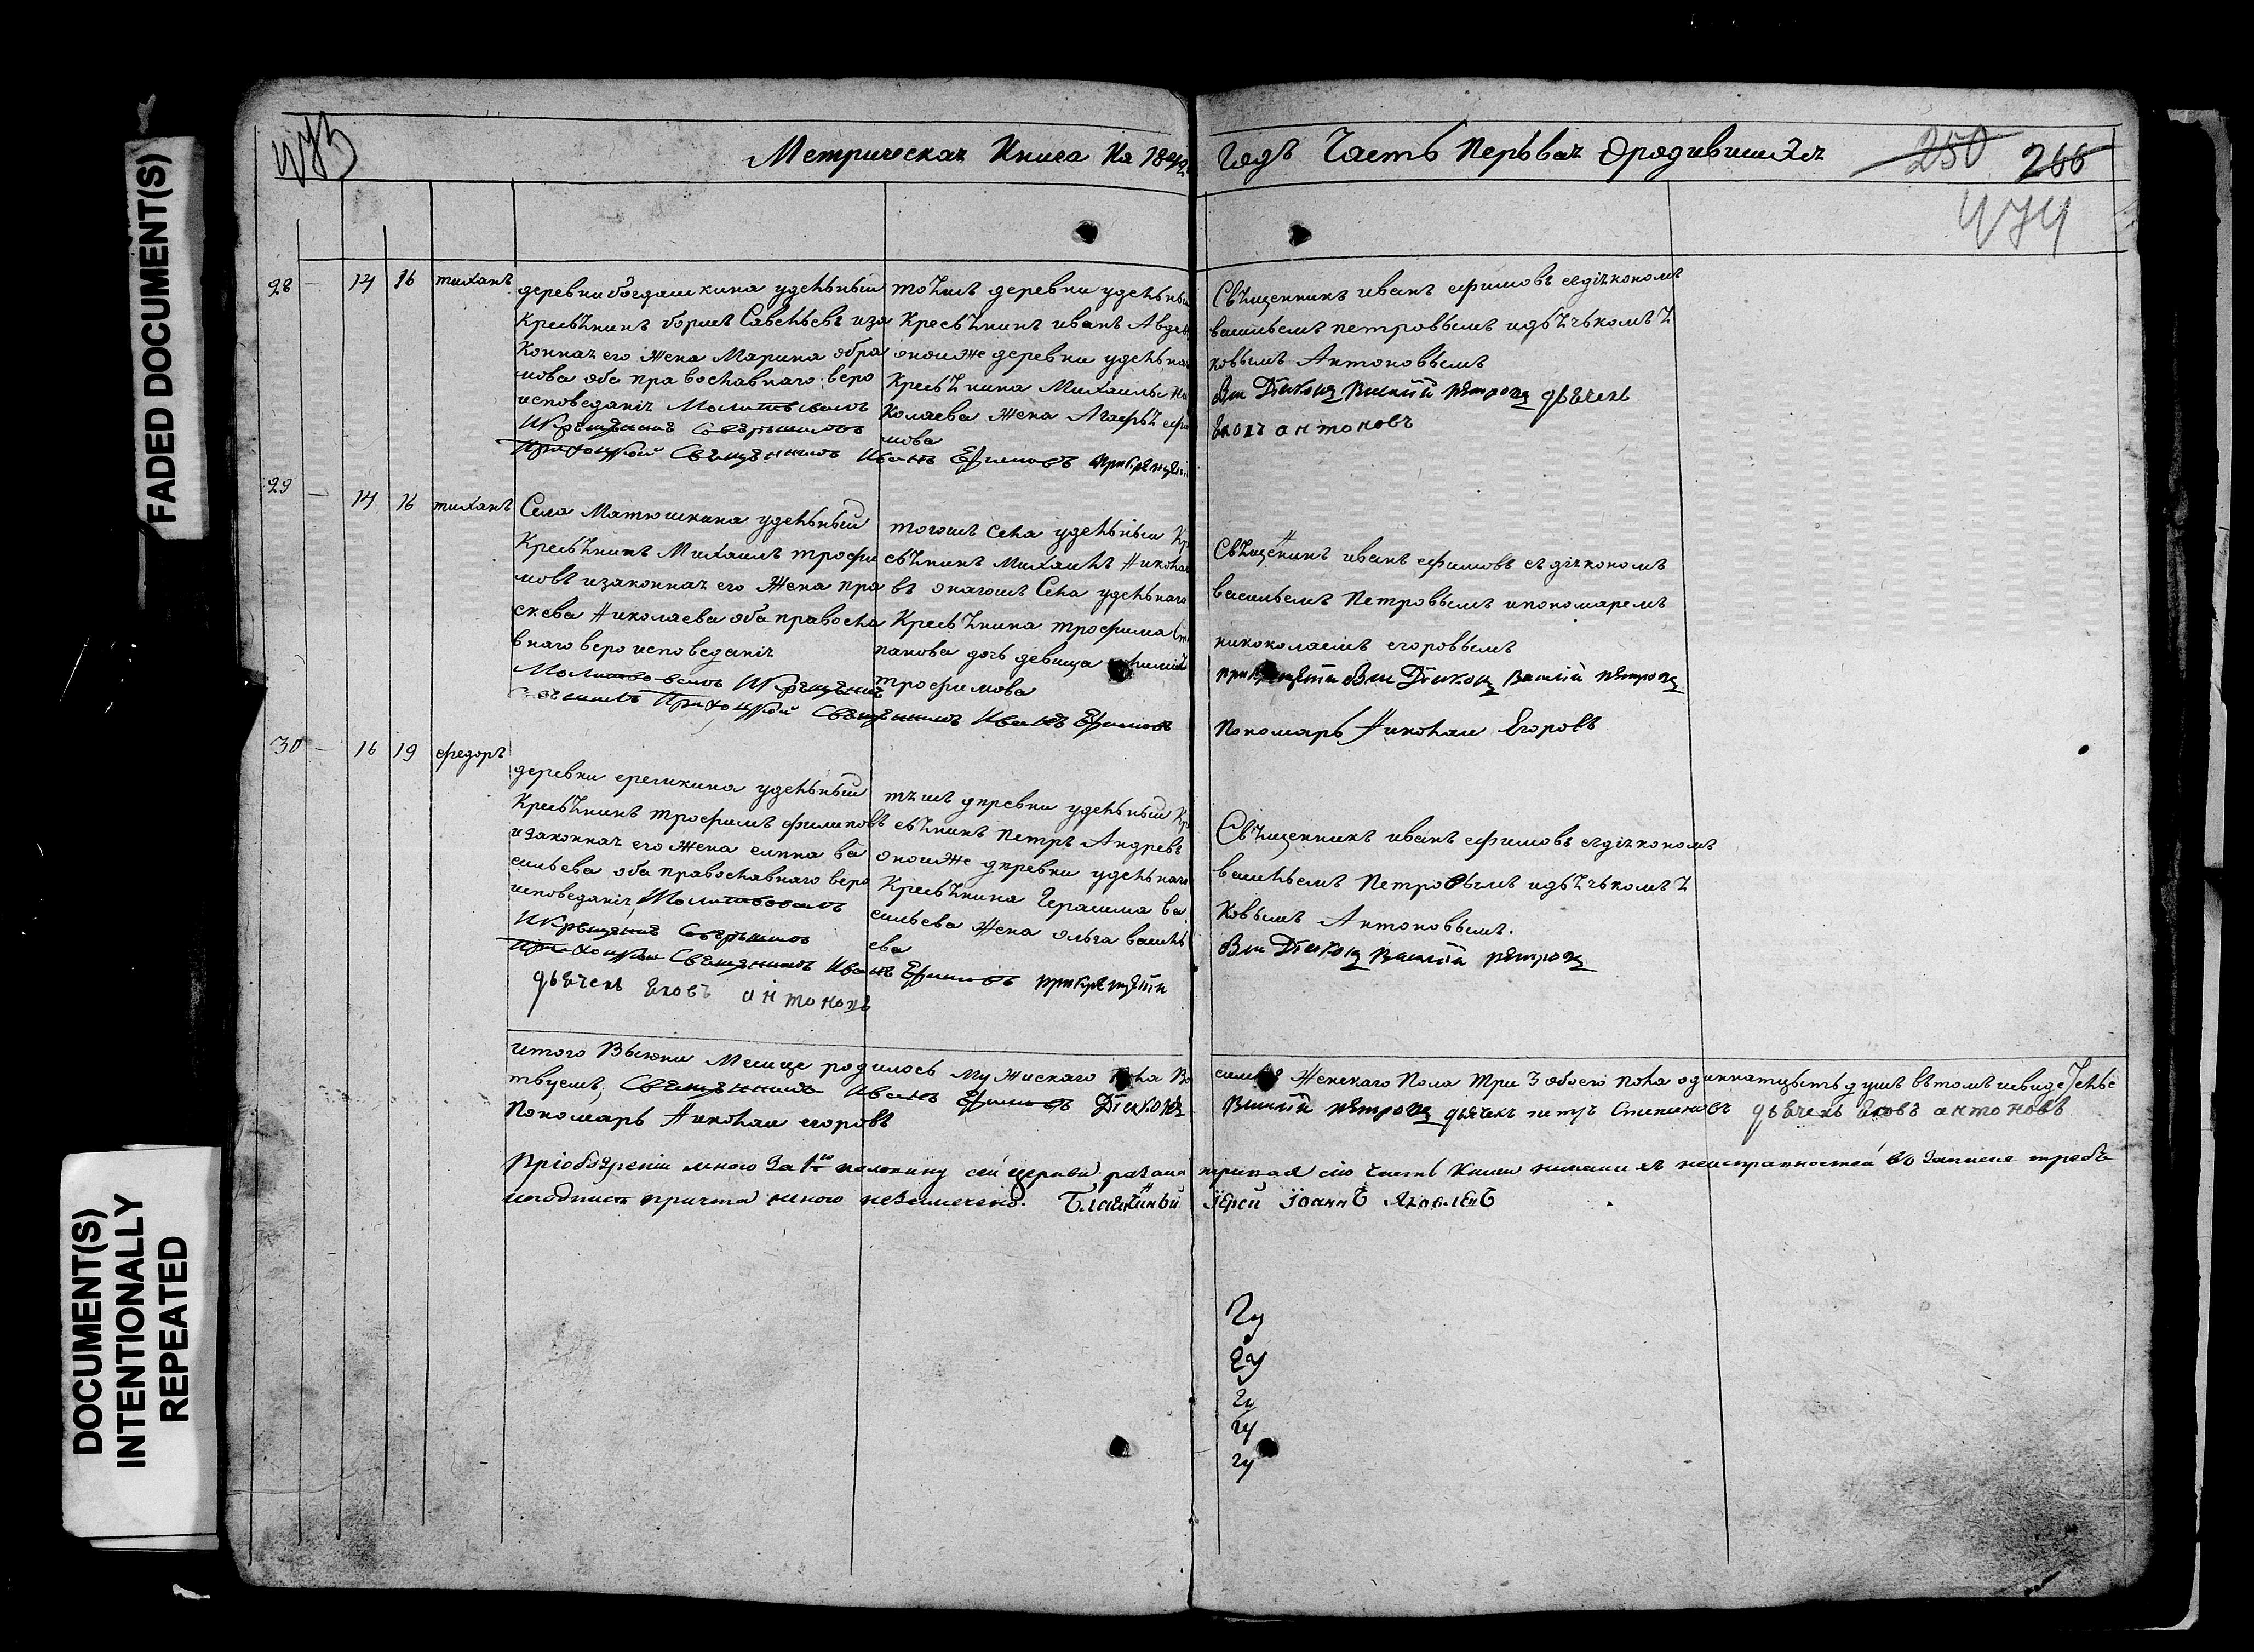 FADED DOCUMENT(S)
DOCUMENT(S)
INTENTIONALLY
REPEATED
473
Метрическая Книга На 1842
Годъ Часть Перьвая Ородившихся
250 266
474
28 — 14 16 тиханъ
деревни богдашкина удельный
Кресьянинъ борисъ Савельевъ иза
Конная его жена Марина абра
мова оба православнаго веро
исповеданія Молитвовалъ
И Крещение Совершилъ
Приходской Священникъ Иванъ Ефимовъ при крещеніи
тояжъ деревни удельны
Кресьянинъ иванъ Авде
оноиже деревни удельна
Кресьянина Михаилы Ни
Колаева жена Агафья ефи
мова
Священникъ иванъ ефимовъ сдіякономъ
васильемъ петровымъ идьячькомъ я
ковымъ Антоновымъ
был Діяконъ Василій петровъ дьячекъ
Яковъ антоновъ
29 — 14 16 тиханъ
Села Матюшкина удельный
Кресьянинъ Михаилъ трофи
мовъ изаконная его жена пра
скева Николаева оба правосла
внаго вероисповеданія
Молитвовалъ И Крещение
Совершилъ Приходской Священникъ Иванъ Ефимовъ
тогожъ села удельныи Кре
сьянинъ михаилъ Никола
въ онагожъ Села удельнаго
Кресьянина трофима Сте
панова дочь девица
трофимова
Священикъ иванъ ефимовъ съ діякономъ
васильемъ Петровымъ ипономаремъ
никоколаемъ егоровымъ
при крещеніи был Діяконъ Василій петровъ
Пономарь Николаи Егоровъ
30 — 16 19 федоръ
деревни ерепкина удельный
Кресьянинъ трофимъ филиповъ
изаконная его жена елина ва
сильева оба православнаго веро
исповеданія Молитвовалъ
И Крещение Совершилъ
Приходской Священникъ Иванъ Ефимовъ при крещеніи
дьячекъ Яковъ антоновъ
тояжъ дпревни удельный Кре
сьянинъ петръ Андревъ
оноиже дпревни удельнаго
Кресьянина Герасима ва
сильева жена ольга василь
ева
Священникъ иванъ ефимовъ съдіякономъ
васильемъ Петровымъ идьячькомъ я
Ковымъ Антоновымъ.
был Діяконъ Василій петровъ
итого Выюни Месице родилось Мужискаго пола Во
семь Женскаго Пола три 3 обоего пола одиннатцеть душъ втомъ
твуемъ, Священникъ Иванъ Ефимовъ Діяконъ
Василій петровъ дьячекъ петръ Степановъ дьячекъ Яковъ антоновъ
Пономарь Николаи егоровъ
При обозреніи мною за 1ю половину сей церкви
сію часть Книги никакихъ неисправностей во записке требъ
иподписи причта мною незамечено. Благочинный
Іерей Іоаннъ Яковлевъ